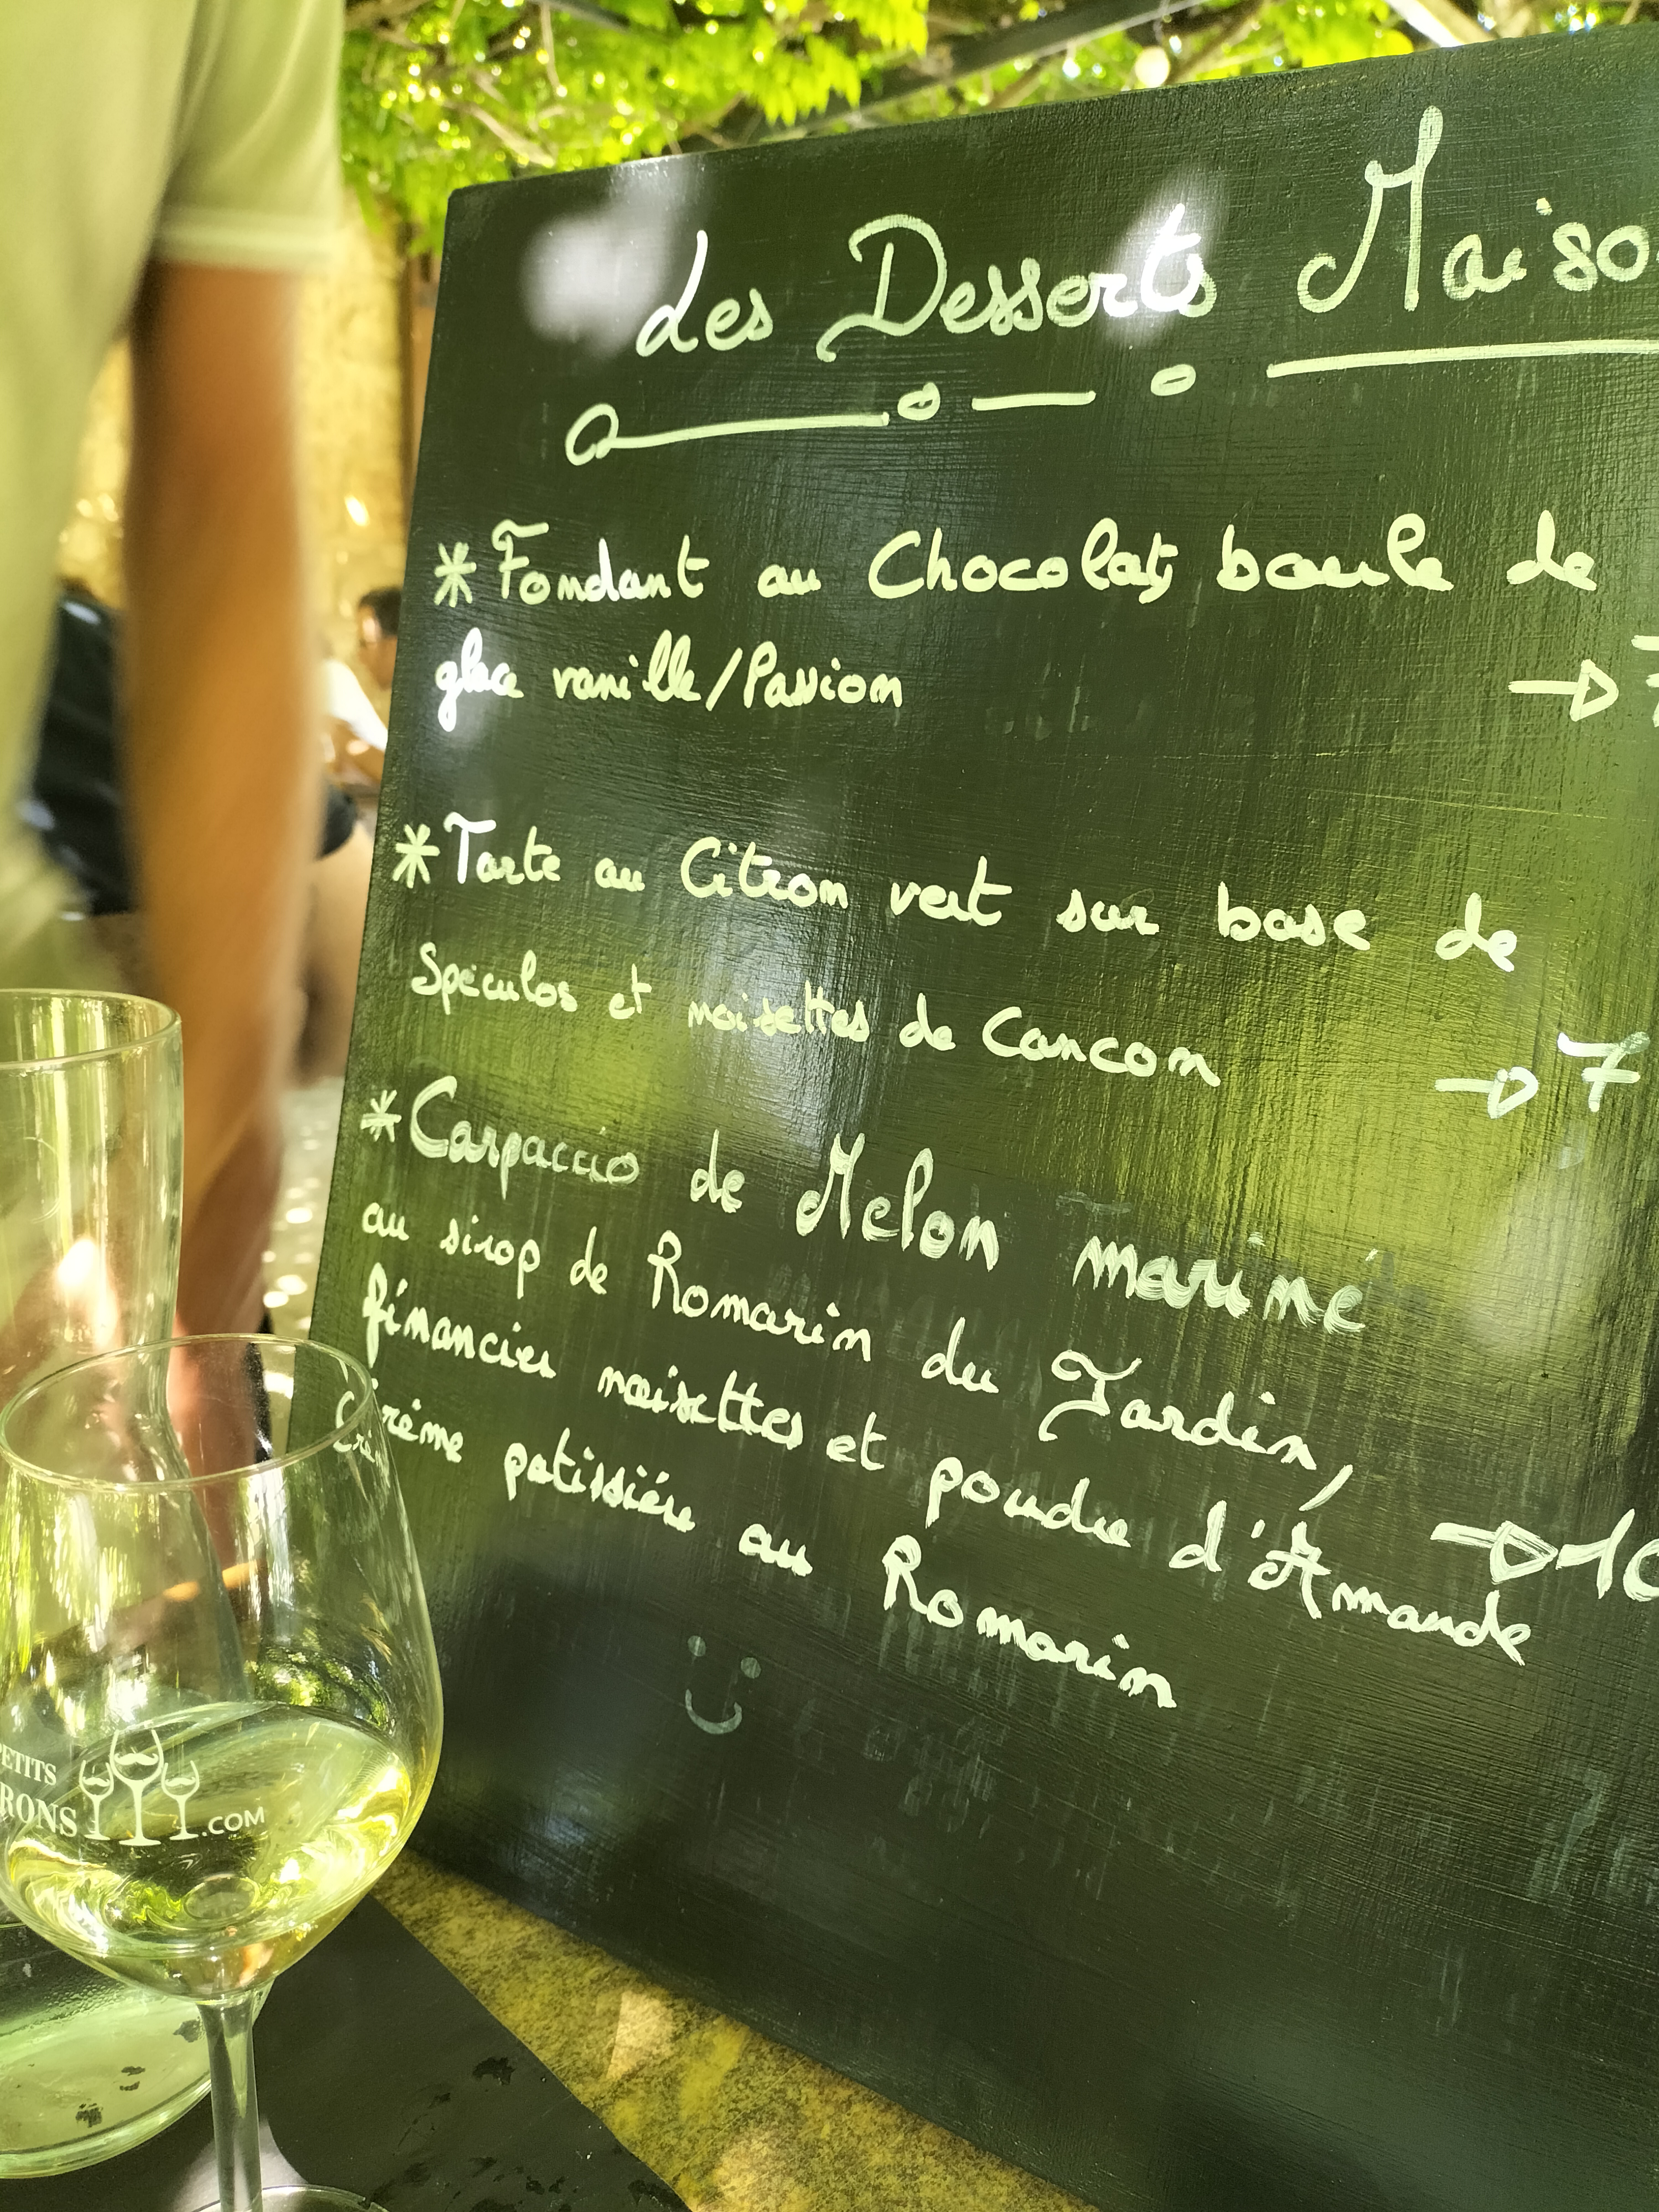 Les Desserts Maiso
* Fondant au Chocolat, boule de
glace vanille/Passion
→ 7
* Tarte au Citron vert sur base de
Spéculos et noisettes de Cancon
→ 7
* Carpaccio de Melon mariné
au sirop de Romarin du Jardin,
financier noisettes et poudre d'Amande
→ 10
Crème patissière au Romarin
PETITS
RONS .COM